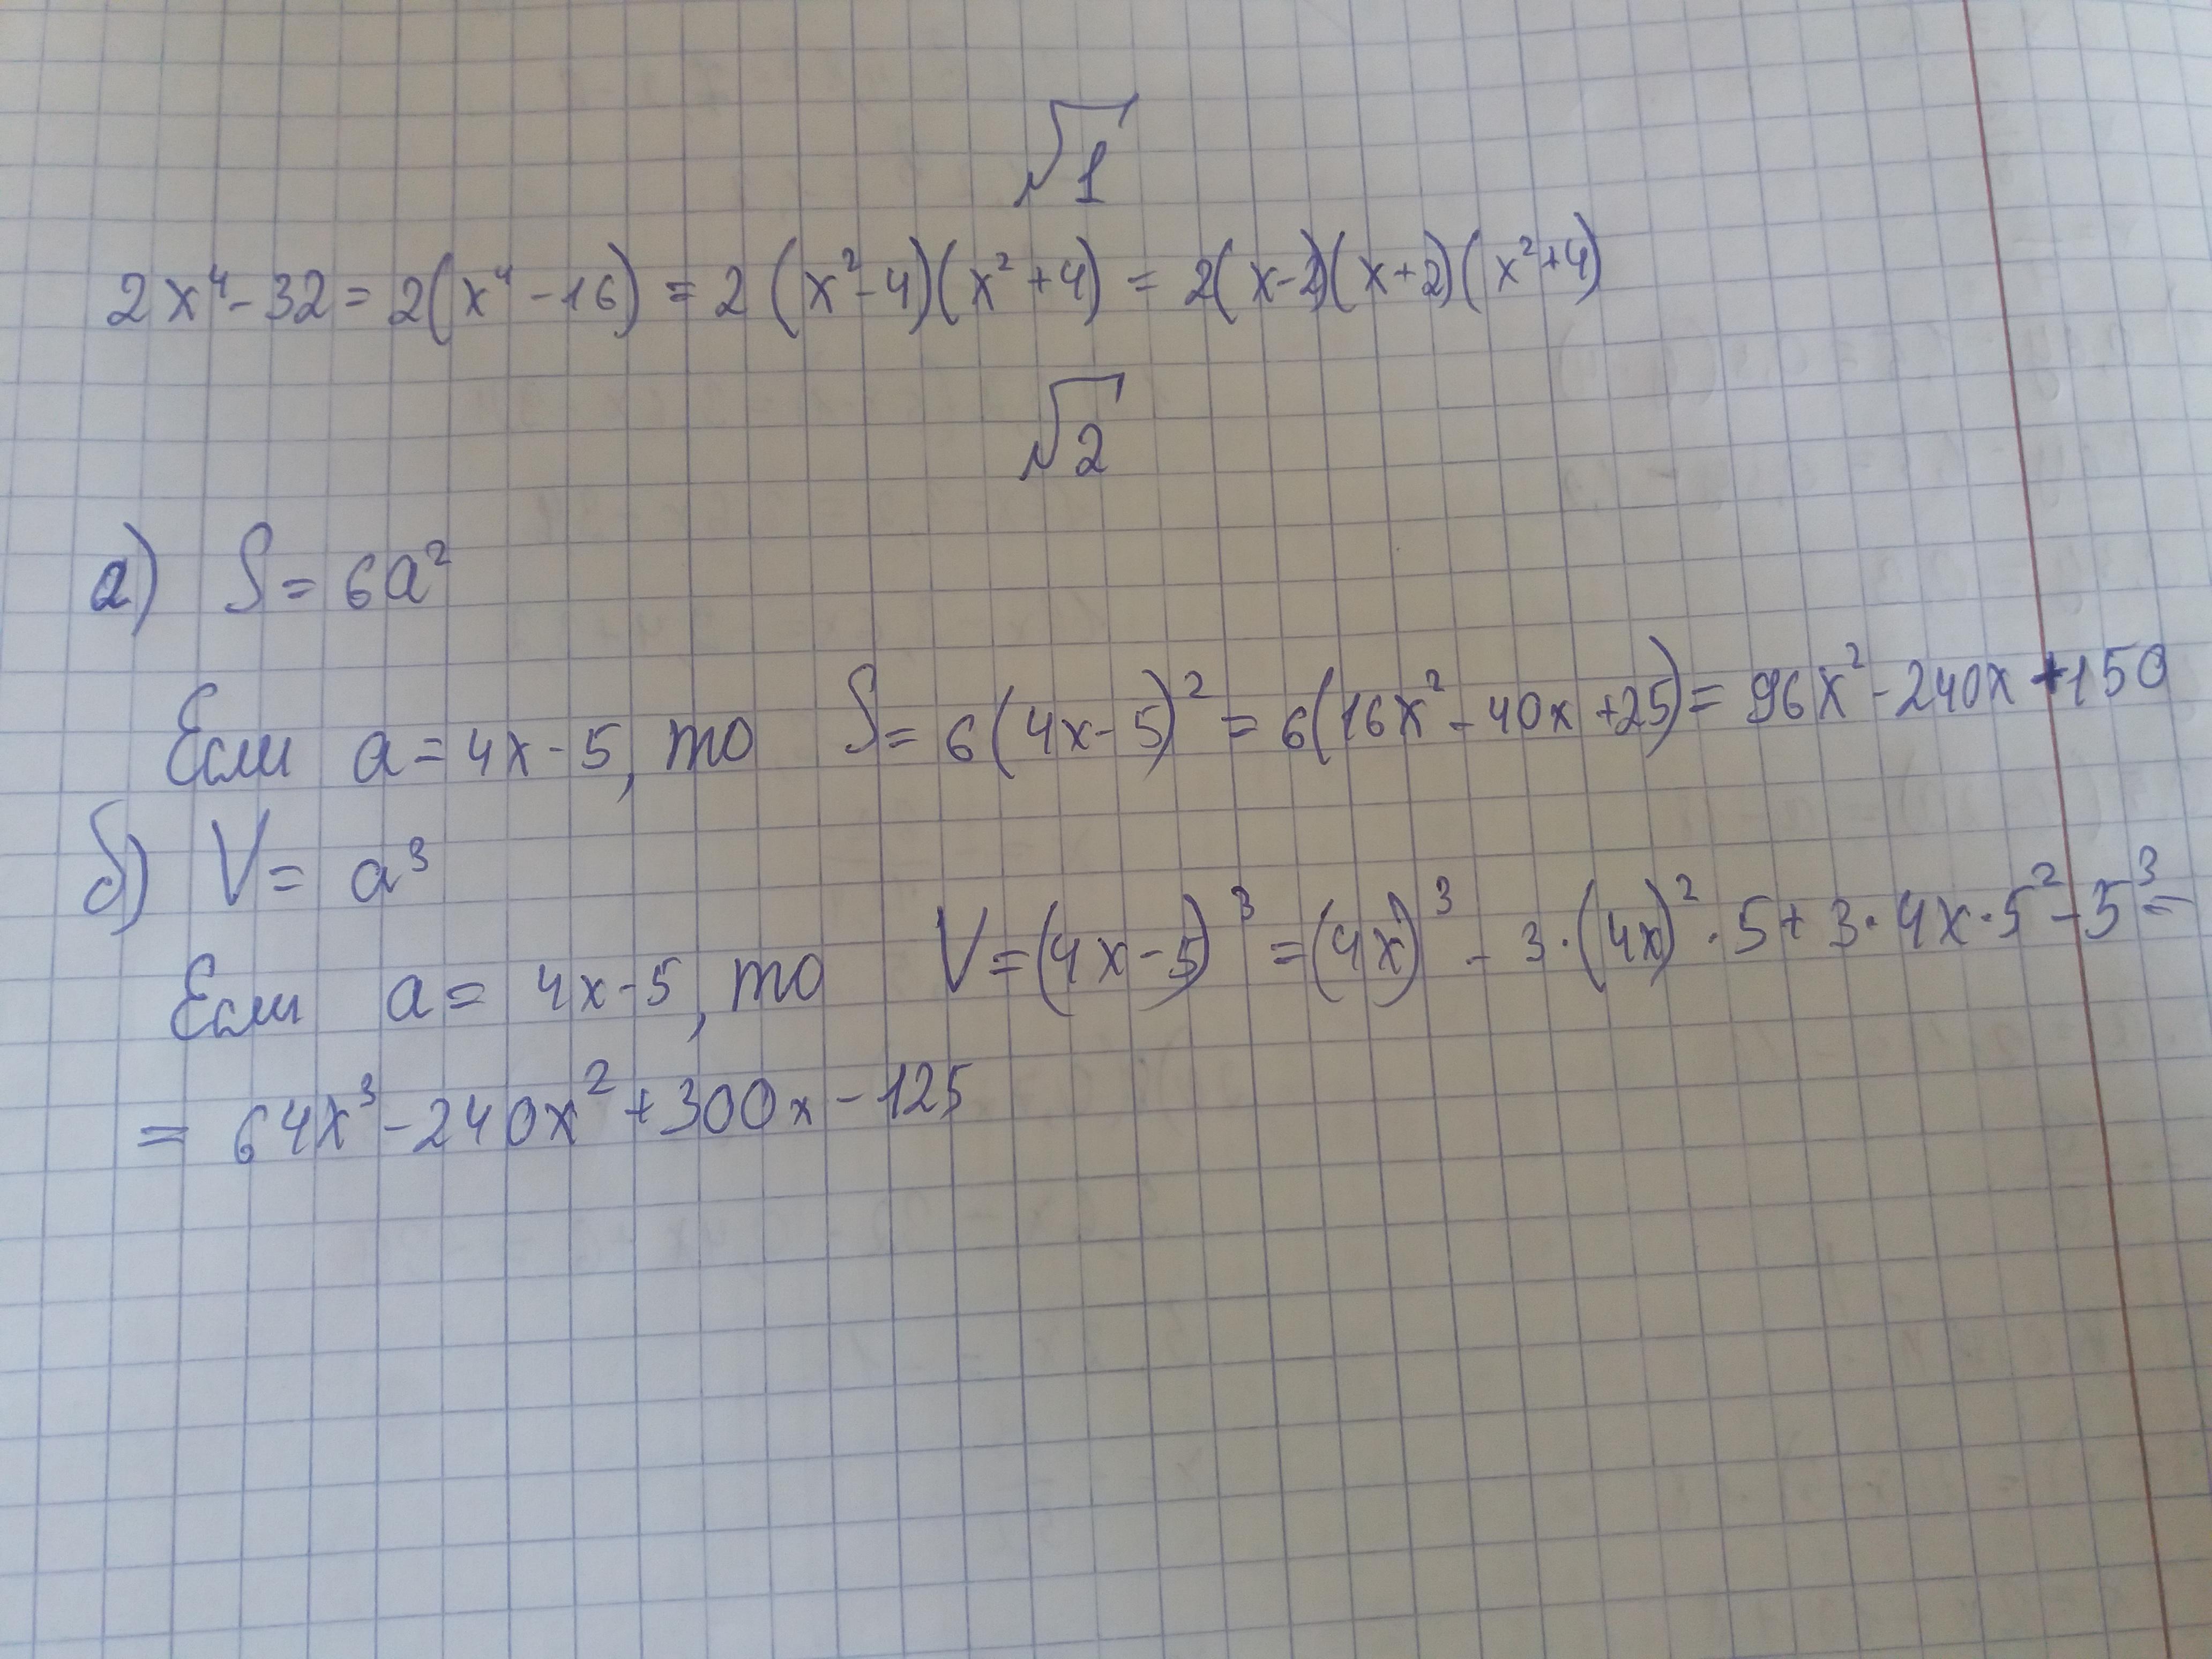 √1
2x⁴-32=2(x⁴-16)=2(x²-4)(x²+4)=2(x-2)(x+2)(x²+4)
√2
а) S=6a²
Если a=4x-5, то S=6(4x-5)²=6(16x²-40x+25)=96x²-240x+150
б) V=a³
Если a=4x-5, то V=(4x-5)³=(4x)³-3·(4x)²·5+3·4x·5²-5³=
=64x³-240x²+300x-125